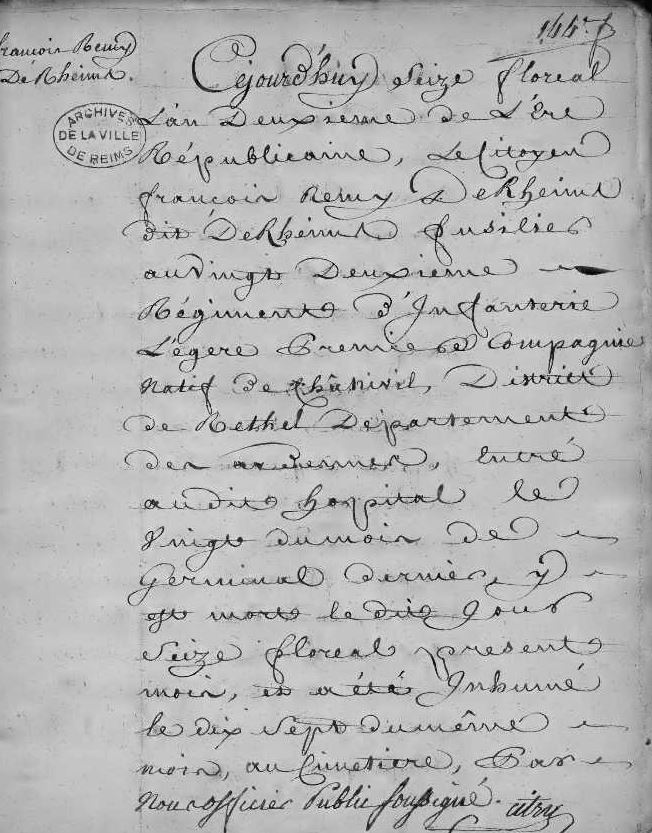 françois Remy
DéRheims.
ARCHIVES
DE LA VILLE
DE REIMS
Céjourd'huy Seize floreal
L'an Deuxieme de L'Ere
Républicaine, Le Citoyen
françois Remy DeRheims
dit DeRheims fusilier
au Vingt Deuxieme
Régiment d'Infanterie
L'égere Premiere Compagnie
natif de District
de Rethel Département
des ardennes, Entré
audit hospital le
Vingt du mois de
Germinal dernier, y
est mort le dit Jour
Seize floreal present
mois, et a été Inhumé
le dix Sept du même
mois, au Cimetiere, Par
Nous officier Public soussigné.